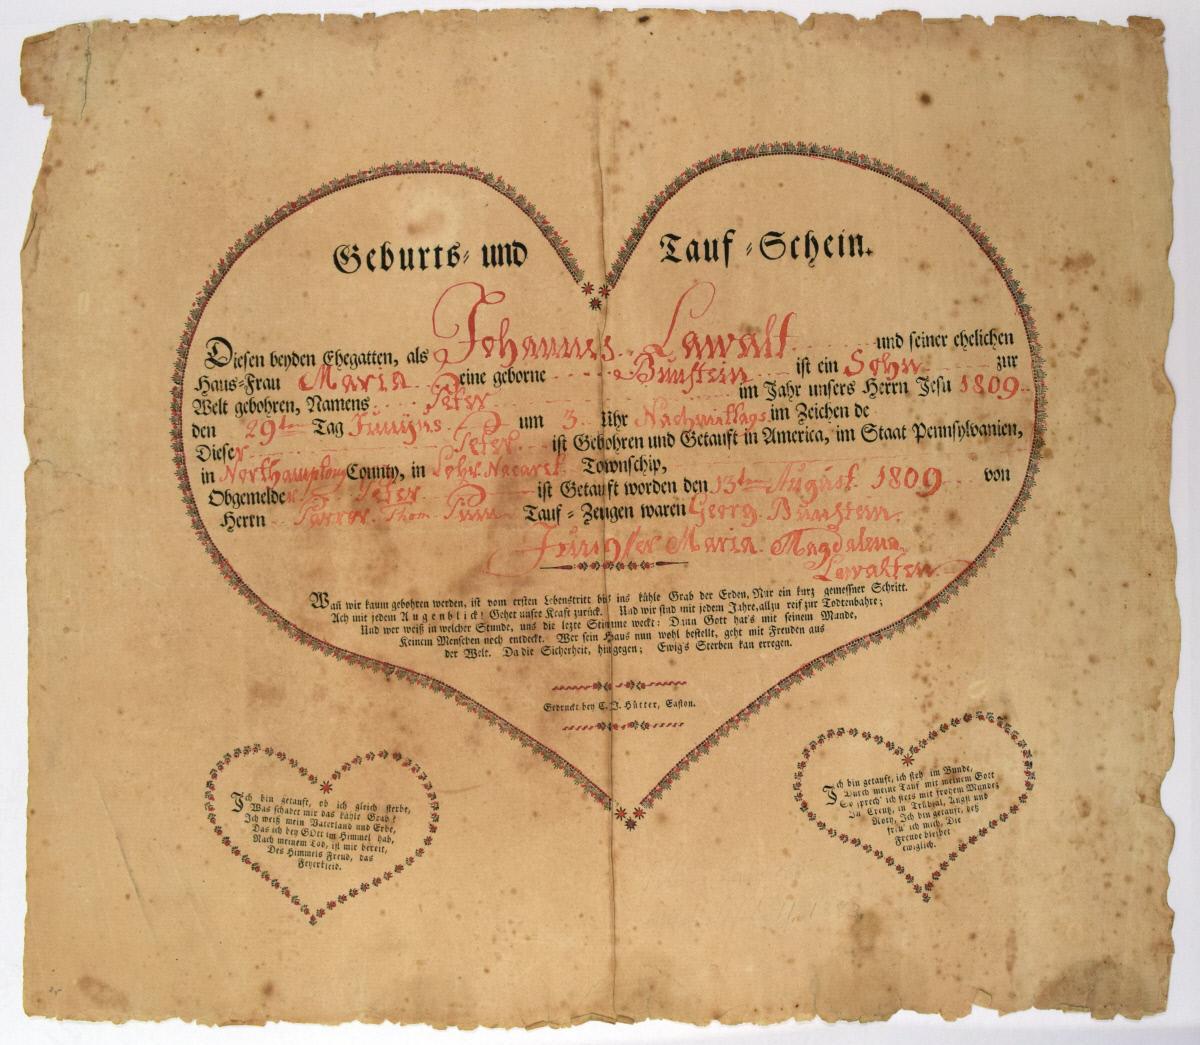 Geburts- und Tauf-Schein.
Diesen beyden Ehegatten, als Johannes Lawalt und seiner ehelichen
Haus-Frau Maria eine geborne Bunstein ist ein Sohn zur
Welt gebohren, Namens Peter im Jahr unsers Herrn Jesu 1809
den 29ten Tag Junyus um 3 Uhr Nachmittags im Zeichen de
Dieser Peter ist Gebohren und Getauft in America, im Staat Pennsylvanien,
in Northampton County, in Nazaret Townschip,
Obgemelder Peter ist Getauft worden den 13ten August 1809 von
Herrn Parrer Thom Tauf-Zeugen waren Georg Bunstein
Maria Magdalena
Lawalten
Wañ wir kaum gebohren werden, ist vom ersten Lebenstritt bis ins kühle Grab der Erden, Nur ein kurz gemessner Schritt.
Ach mit jedem Augenblick! Gehet unsre Kraft zurück. Und wir sind mit jedem Jahre, allzu reif zur Todtenbahre;
Und wer weiß in welcher Stunde, uns die lezte Stimme weckt: Dann Gott hat's mit seinem Munde,
Keinem Menschen noch entdeckt. Wer sein Haus nun wohl bestellt, geht mit Freuden aus
der Welt. Da die Sicherheit, hingegen; Ewig's Sterben kan erregen.
Gedruckt bey C. J. Hütter, Easton.
Ich bin getauft, ob ich gleich sterbe,
Was schadet mir das kühle Grab?
Ich weiß mein Vaterland und Erbe,
Das ich bey GOtt im Himmel hab,
Nach meinem Tod, ist mir bereit,
Des Himmels Freud, das
Feyerkleid.
Ich bin getauft, ich steh im Bunde,
Durch meine Tauf mit meinem Gott
So sprech' ich stets mit frohem Munde,
In Creutz, in Trübsal, Angst und
Noth, Ich bin getauft, deß
freu' ich mich, Die
Freude bleibet
ewiglich.